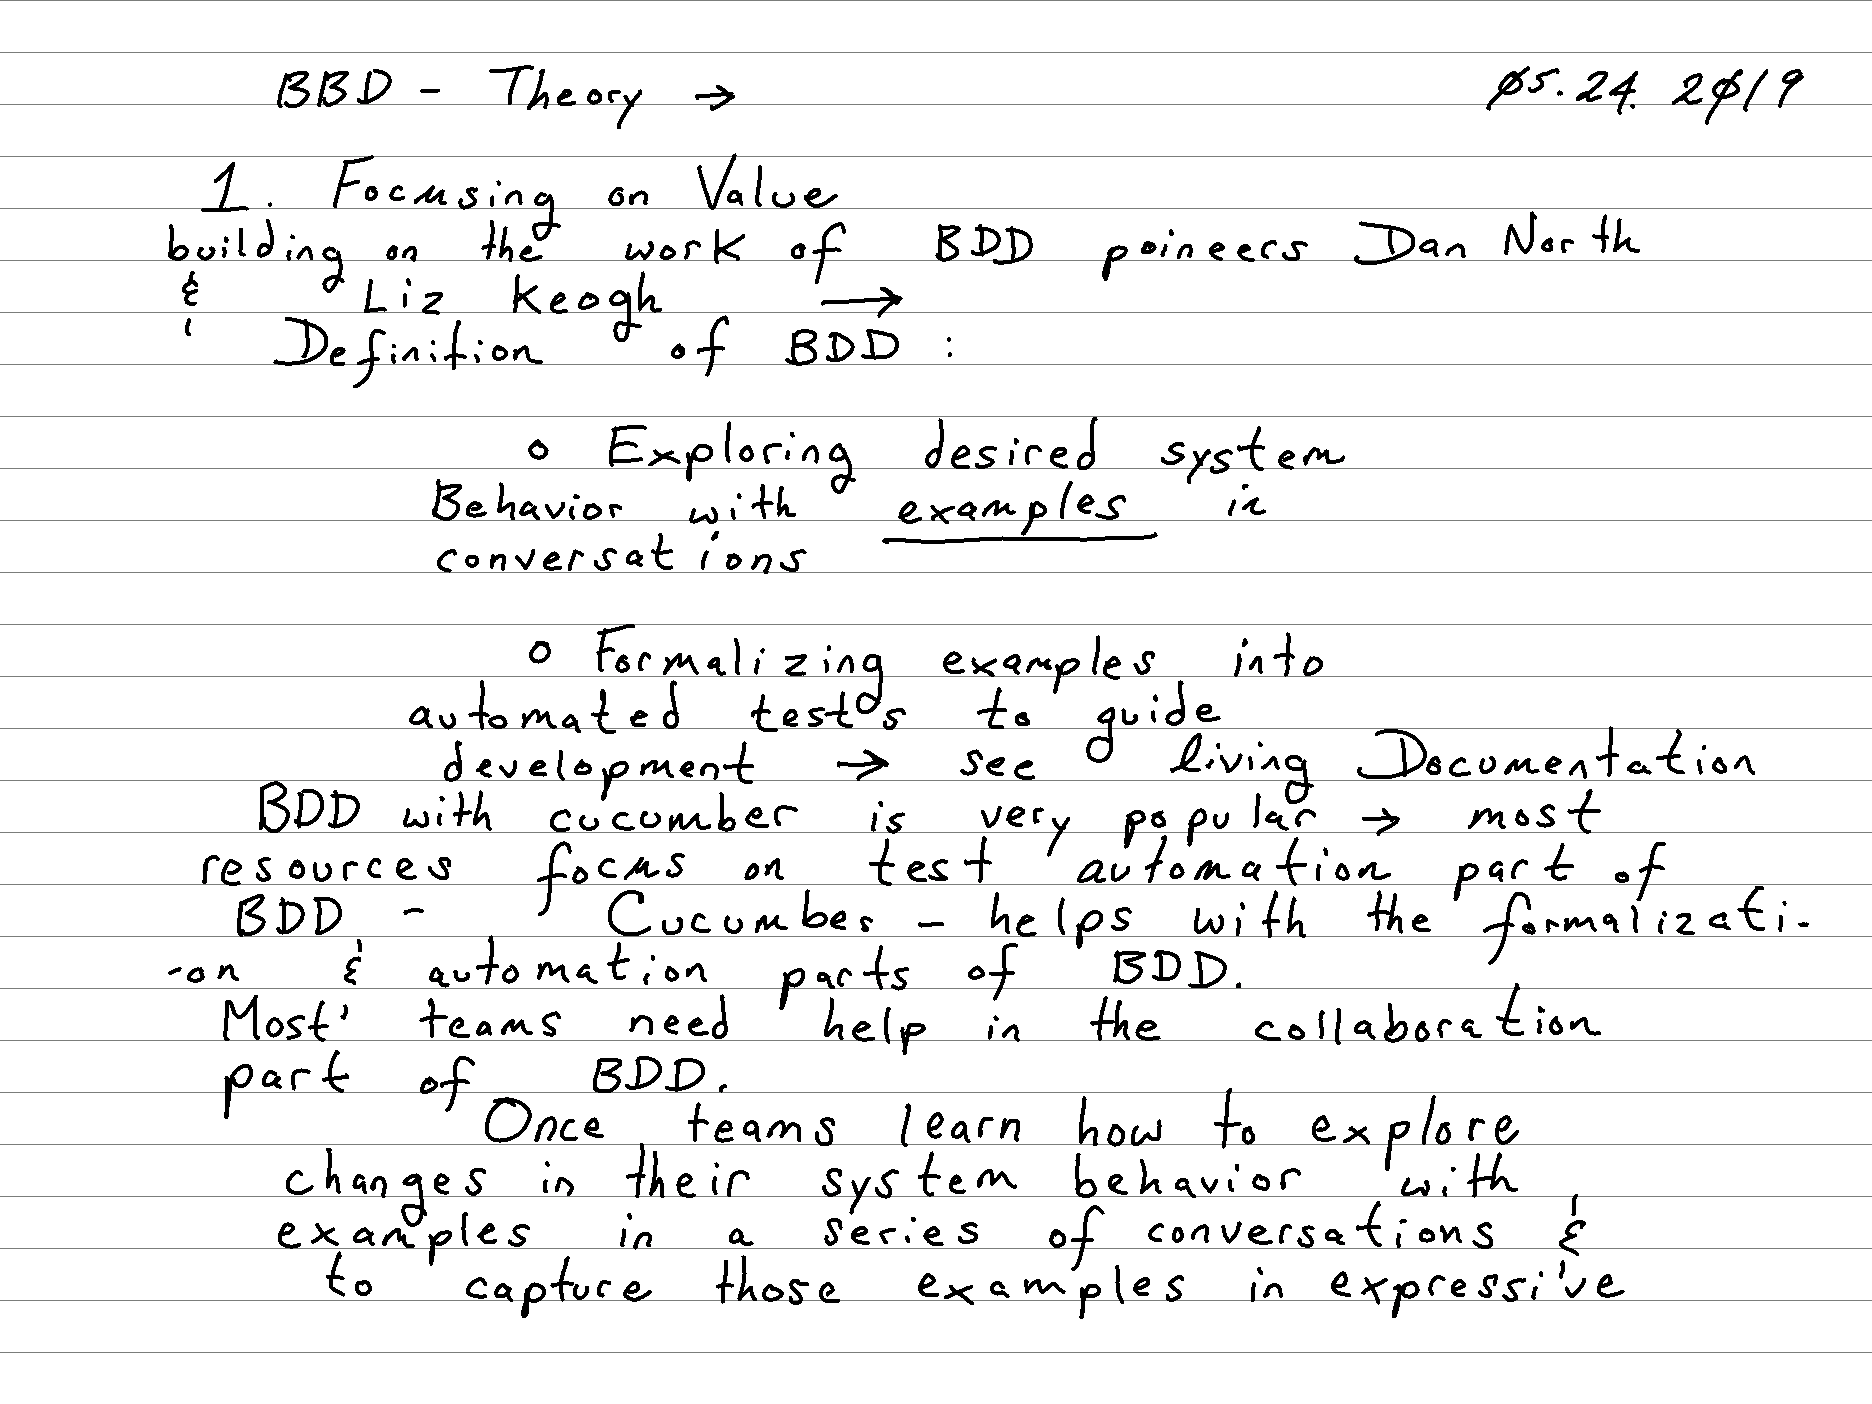 BBD - Theory → 05.24.2019
1. Focusing on Value
building on the work of BDD poineers Dan North
& Liz Keogh →
Definition of BDD :
o Exploring desired system
Behavior with examples in
conversations
o Formalizing examples into
automated tests to guide
development → see living Documentation
BDD with cucumber is very popular → most
resources focus on test automation part of
BDD - Cucumber - helps with the formalizati-
-on & automation parts of BDD.
Most teams need help in the collaboration
part of BDD.
Once teams learn how to explore
changes in their system behavior with
examples in a series of conversations &
to capture those examples in expressive